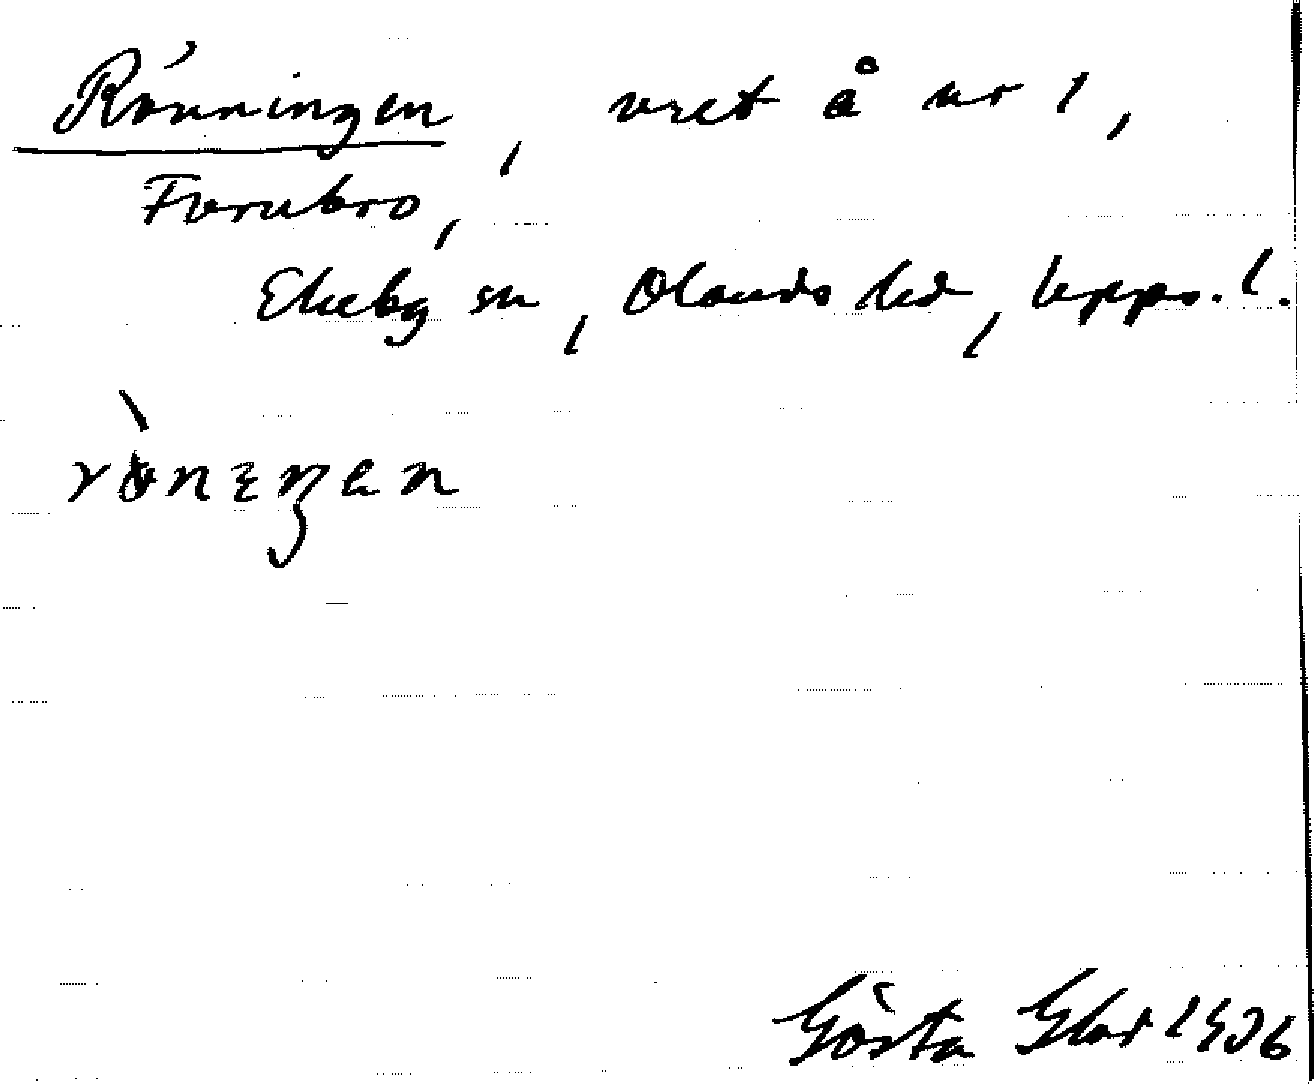 Rönningen, vret å nr 1,
Forubro,
Ekeby sn, Olands hd, Upps. l.
rò̀nıŋen
Gösta Glad 1936